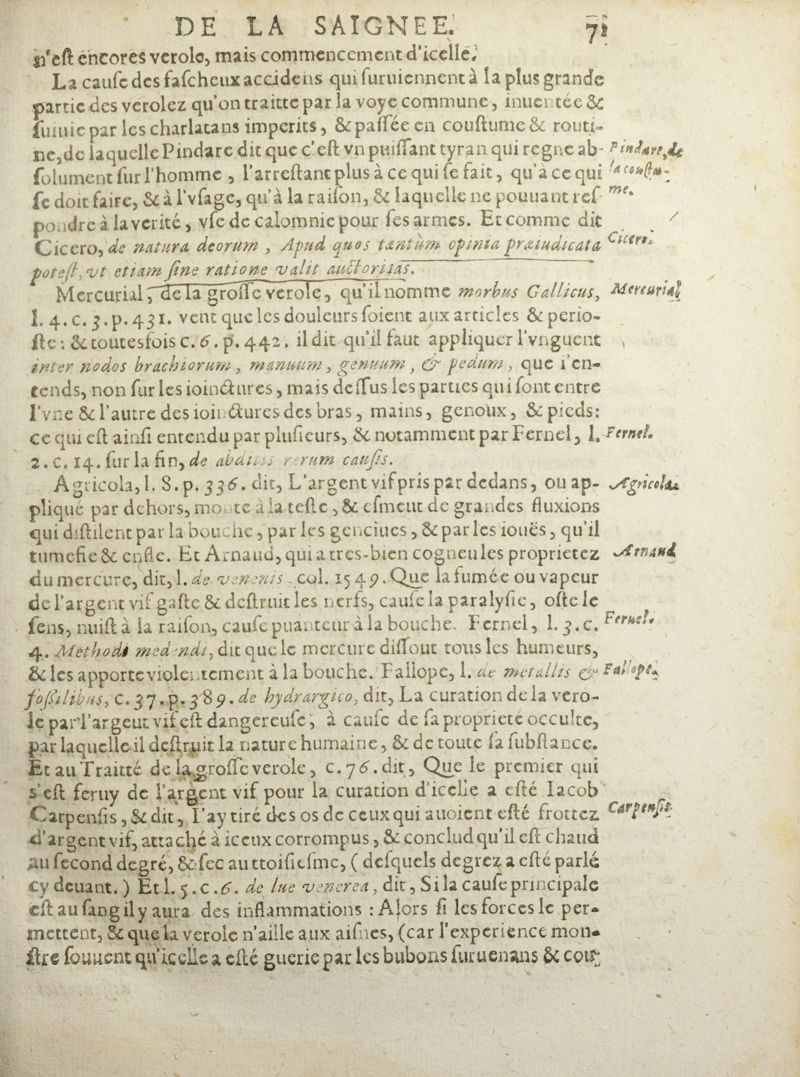 DE LA SAIGNEE. 71
n'eſt encores verole, mais commencement d'icelle.
La cauſe des faſcheux accidens qui ſuruiennent à la plus grande
partie des verolez qu'on traitte par la voye commune, inuentée &
ſuiuie par les charlatans imperits, & paſſée en couſtume & routi-
ne, de laquelle Pindare dit que c'eſt vn puiſſant tyran qui regne ab- Pindare, de
ſolument ſur l'homme, l'arreſtant plus à ce qui ſe fait, qu'à ce qui la couſtu-
ſe doit faire, & à l'vſage, qu'à la raiſon, & laquelle ne pouuant reſ- me.
pondre à la verité, vſe de calomnie pour ſes armes. Et comme dit
Cicero, de natura deorum, Apud quos tantùm opinia præiudicata Cicero.
poteſt, vt etiam ſine ratione valit auctoritas.
Mercurial, de la groſſe verole, qu'il nomme morbus Gallicus, Mercurial
l. 4. c. 3. p. 431. vent que les douleurs ſoient aux articles & perio-
ſte : & toutesfois c. 6. p. 442. il dit qu'il faut appliquer l'vnguent
inter nodos brachiorum, manuum, genuum, & pedum, que i'en-
tends, non ſur les iointures, mais deſſus les parties qui ſont entre
l'vne & l'autre des iointures des bras, mains, genoux, & pieds:
ce qui eſt ainſi entendu par pluſieurs, & notamment par Fernel, l. Fernel.
2. c. 14. ſur la fin, de abditis rerum cauſis.
Agricola, l. 8. p. 336. dit, L'argent vif pris par dedans, ou ap- Agricola
pliqué par dehors, monte à la teſte, & eſmeut de grandes fluxions
qui diſtilent par la bouche, par les genciues, & par les iouës, qu'il
tumefie & enfle. Et Arnaud, qui a tres-bien cogneu les proprietez Arnaud
du mercure, dit, l. de venenis. col. 1549. Que la fumée ou vapeur
de l'argent vif gaſte & deſtruit les nerfs, cauſe la paralyſie, oſte le
ſens, nuiſt à la raiſon, cauſe puanteur à la bouche. Fernel, l. 3. c. Fernel.
4. Methodi medendi, dit que le mercure diſſout tous les humeurs,
& les apporte violentement à la bouche. Fallope, l. de metallis & Fallope,
foſsilibus, c. 37. p. 389. de hydrargico, dit, La curation de la vero-
le par l'argeut vif eſt dangereuſe, à cauſe de ſa proprieté occulte,
par laquelle il deſtruit la nature humaine, & de toute ſa ſubſtance.
Et au Traitté de la groſſe verole, c. 76. dit, Que le premier qui
s'eſt ſeruy de l'argent vif pour la curation d'icelle a eſté Iacob
Carpenſis, & dit, I'ay tiré des os de ceux qui auoient eſté frottez Carpenſis
d'argent vif, attaché à iceux corrompus, & conclud qu'il eſt chaud
au ſecond degré, & ſec au ttoiſieſme, (deſquels degrez a eſté parlé
cy deuant.) Et l. 5. c. 6. de lue venerea, dit, Si la cauſe principale
eſt au ſang il y aura des inflammations : Alors ſi les forces le per-
mettent, & que la verole n'aille aux aiſnes, (car l'experience mon-
ſtre ſouuent qu'icelle a eſté guerie par les bubons ſuruenans & cou-